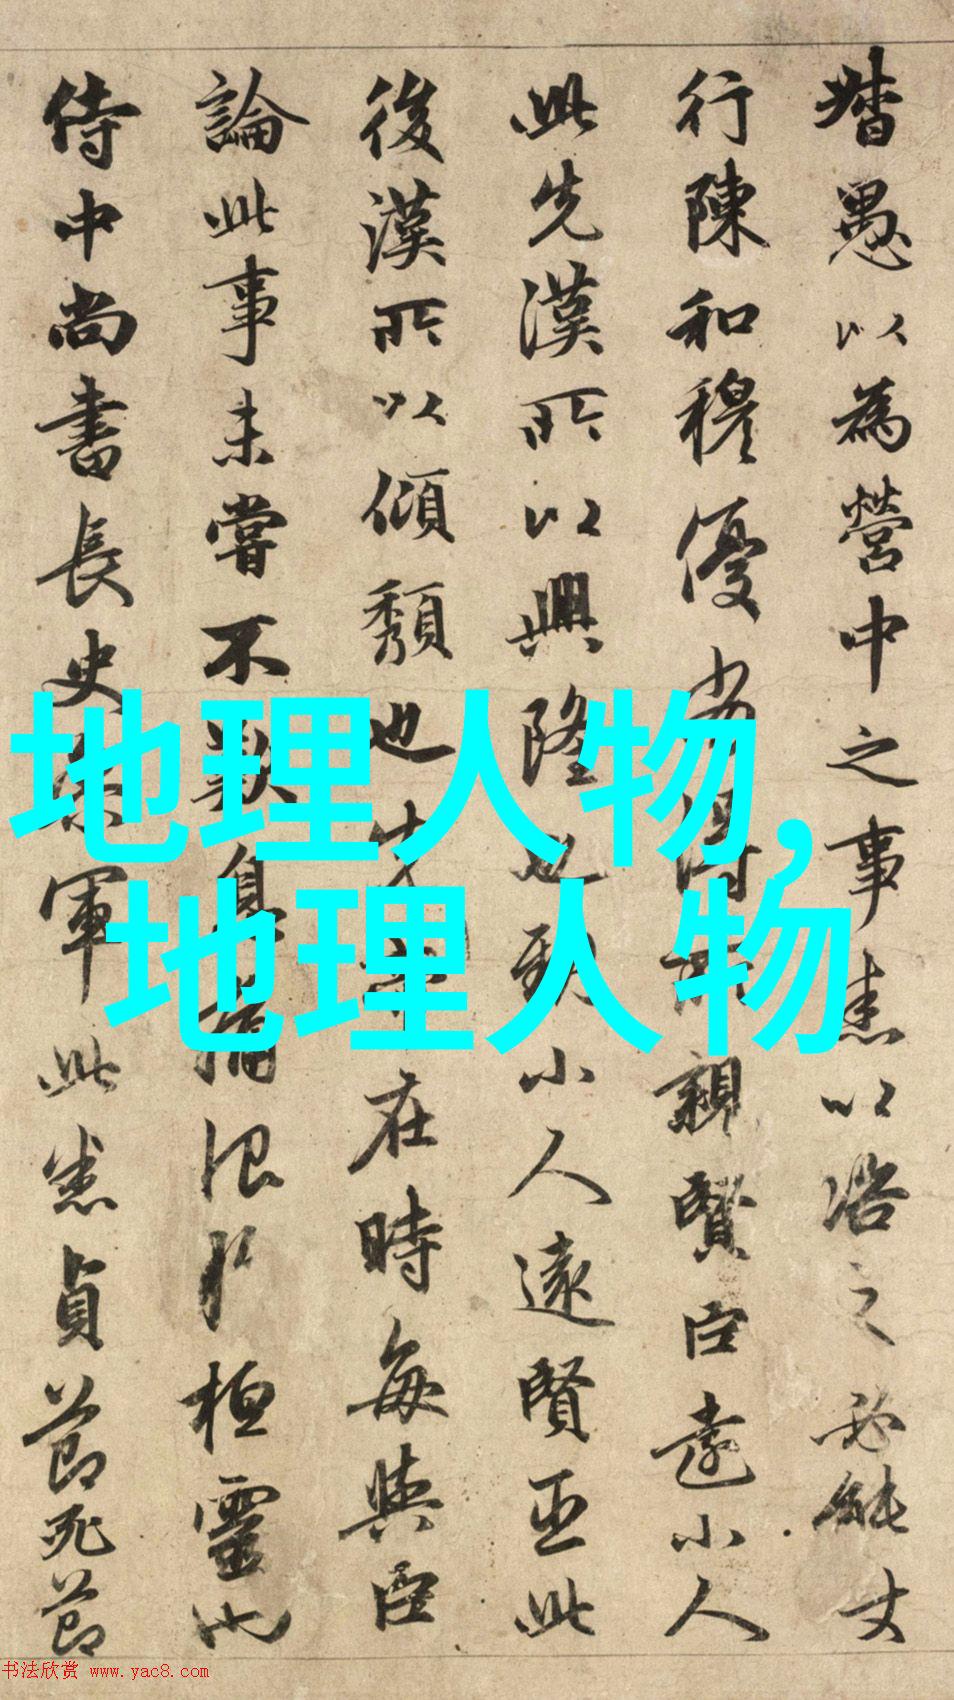 督愚以為營中之事悉以沿之必能丈
行陳和穆優劣得所親賢臣遠小人
此先漢所以興隆也親小人遠賢臣此
後漢所以傾頹也先帝在時每與臣
論此事未嘗不歎息痛恨於桓靈也
侍中尚書長史參軍此悉貞節死節
地理人物,
地理人物
书法欣赏 www.yac8.com